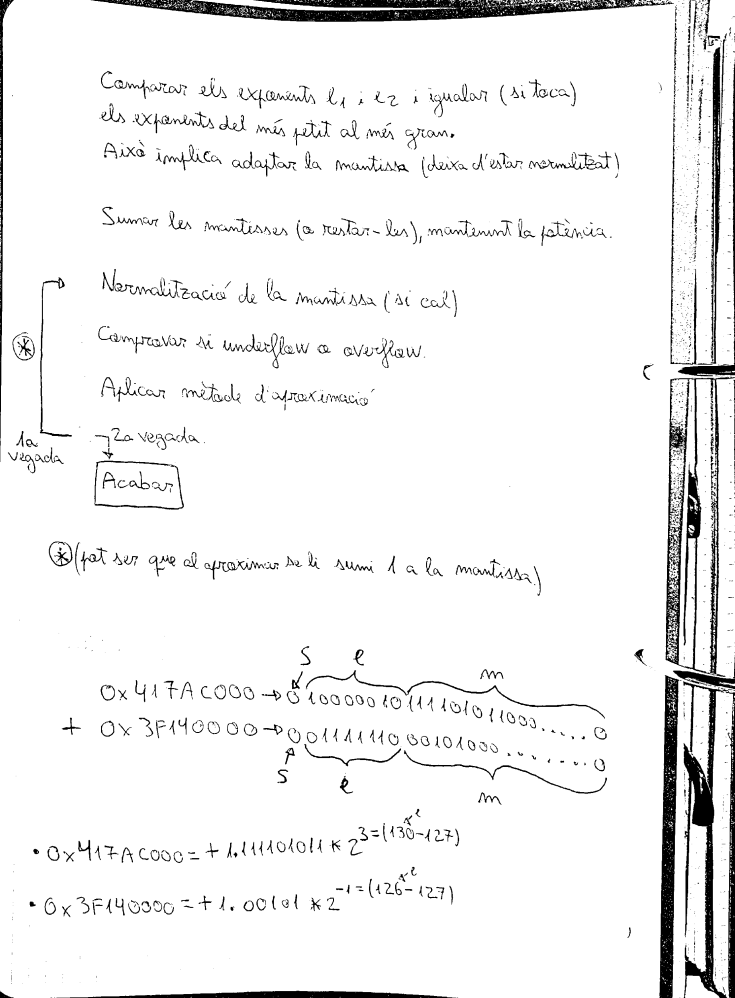 Comparar els exponents e1 i e2 i igualar (si toca)
els exponents del més petit al més gran.
Això implica adaptar la mantissa (deixa d'estar normalitzat)
Sumar les mantisses (o restar-les), mantenint la potència.
Normalització de la mantissa (si cal)
*
Comprovar si underflow o overflow.
Aplicar mètode d'aproximació
1a vegada
2a vegada.
Acabar
* (pot ser que al aproximar se li sumi 1 a la mantissa)
S e m
0x417AC000 → 0 10000010 111101011000......0
+ 0x3F140000 → 0 01111110 00101000........0
S e m
• 0x417AC000 = + 1.111101011 * 2^3=(130-127) e
• 0x3F140000 = + 1.00101 * 2^-1=(126-127) e